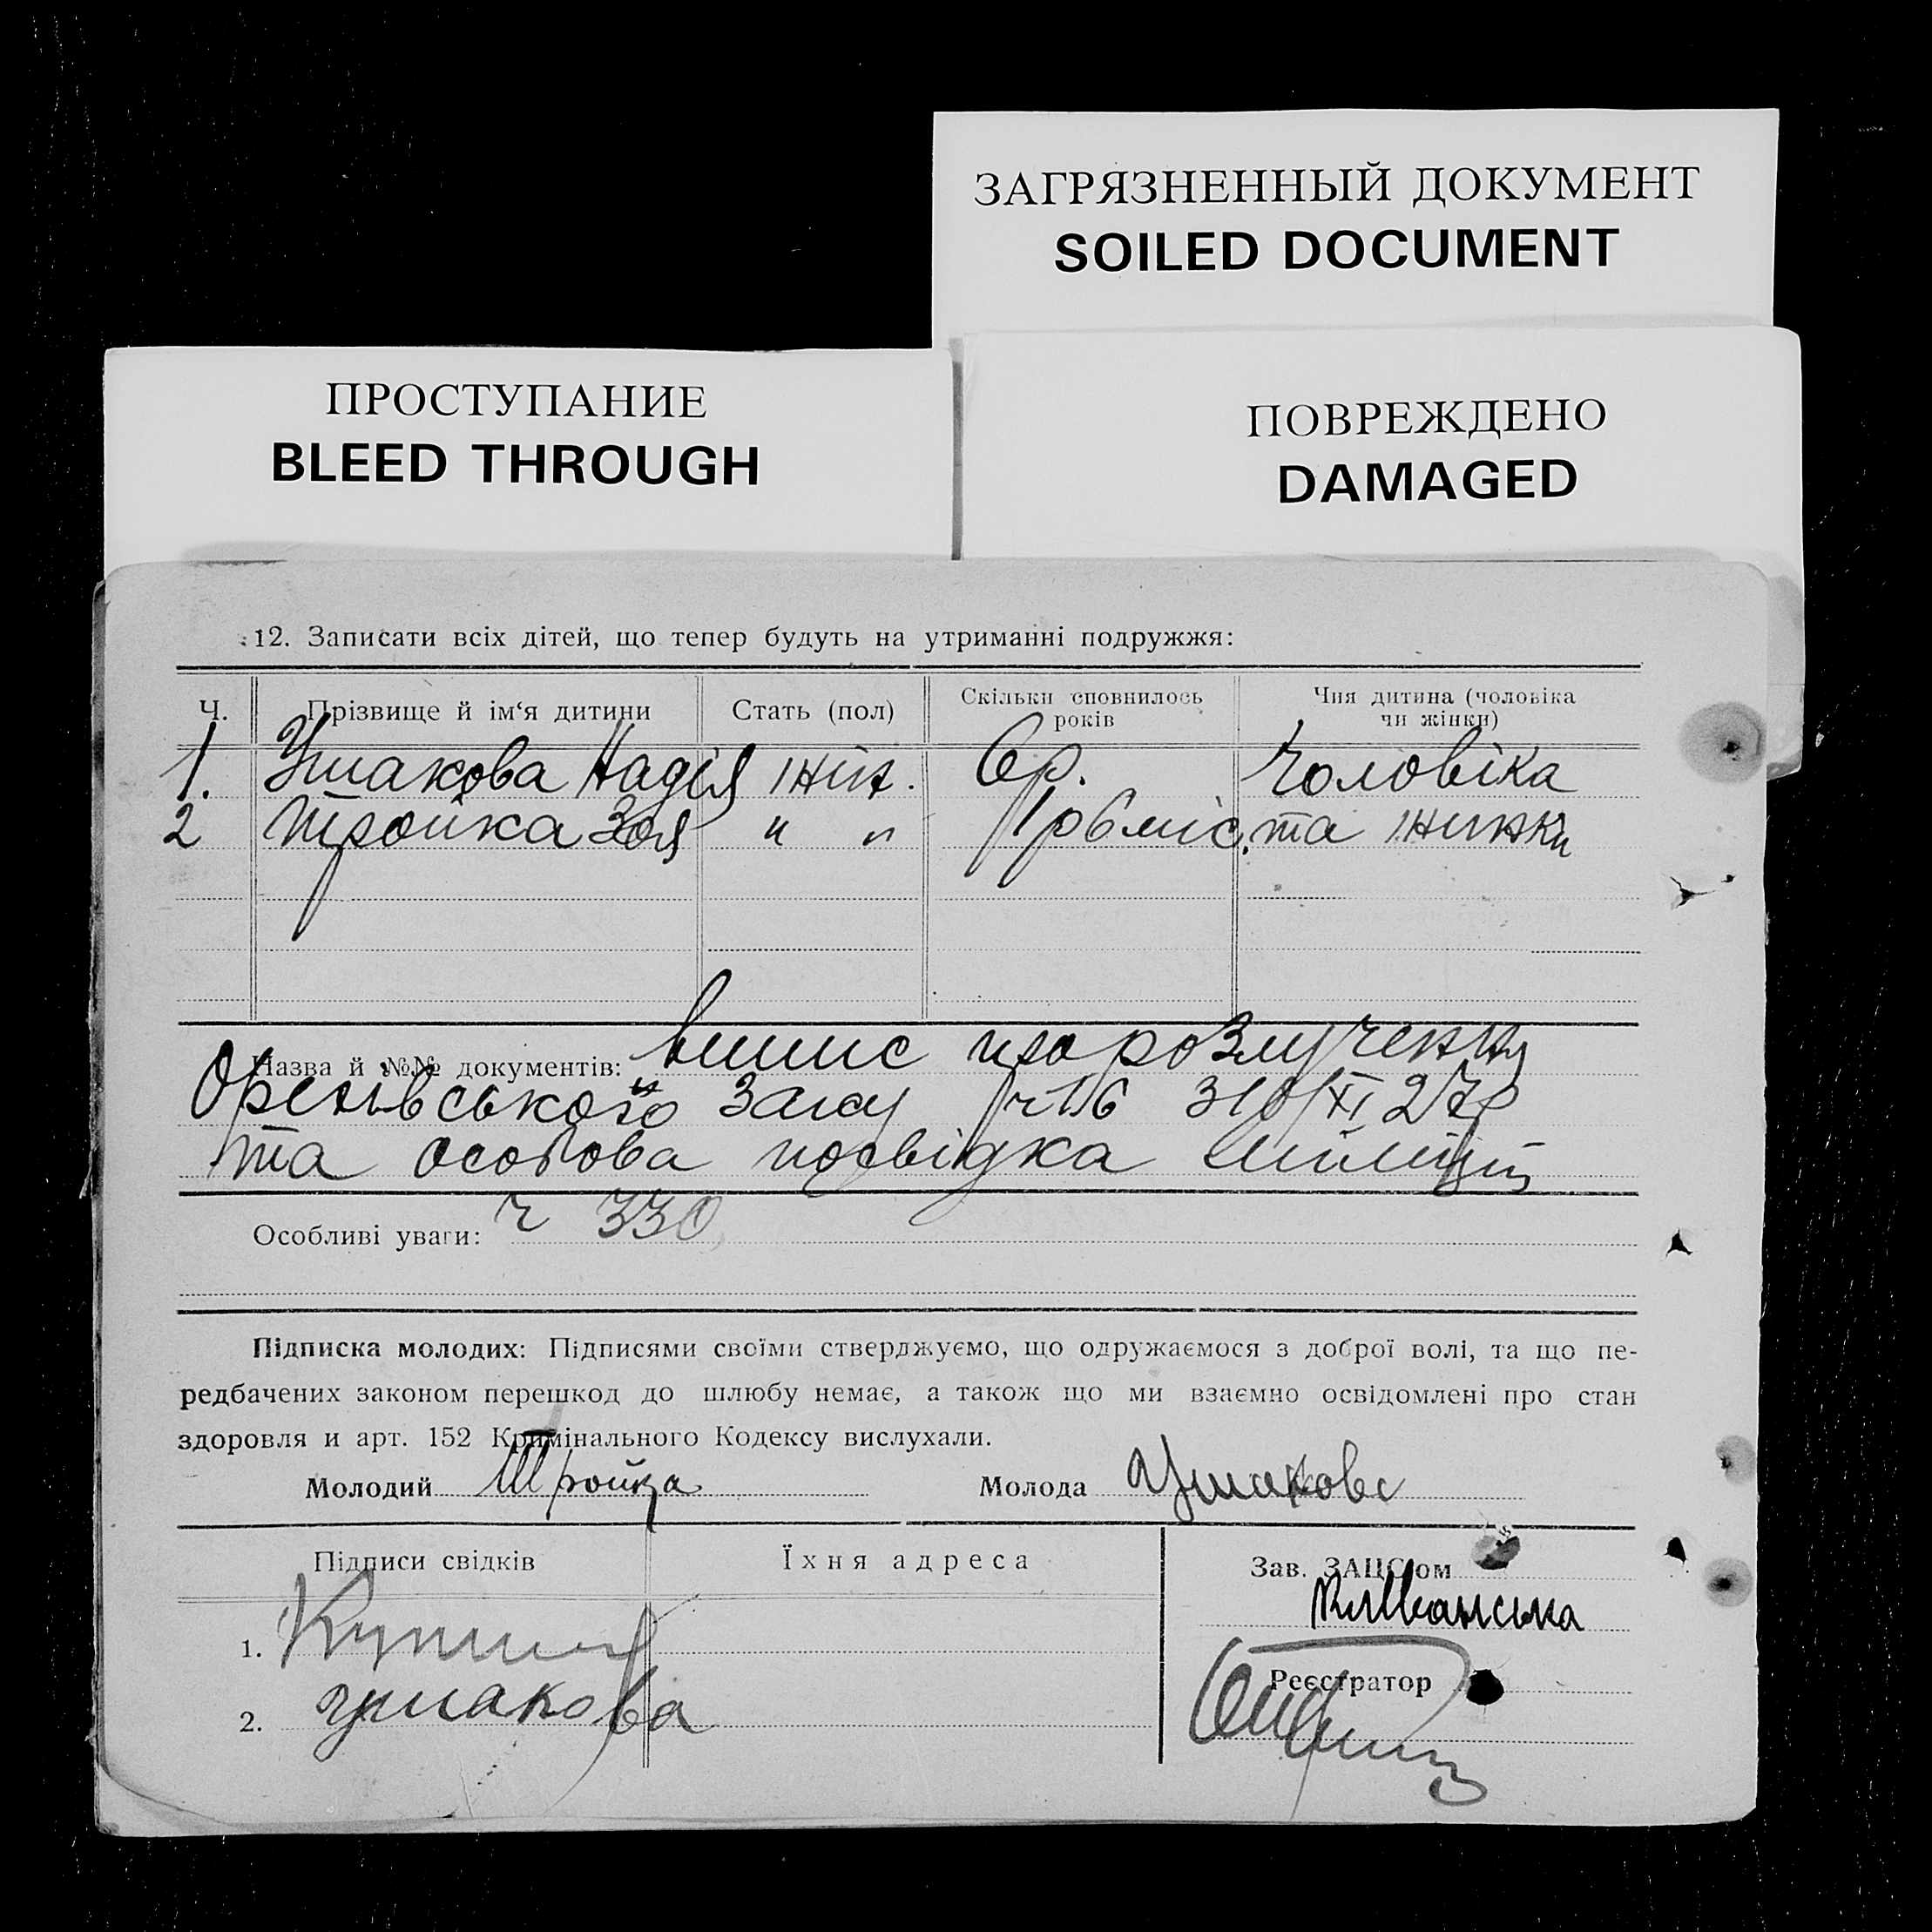 ЗАГРЯЗНЕННЫЙ ДОКУМЕНТ
SOILED DOCUMENT
ПРОСТУПАНИЕ
BLEED THROUGH
ПОВРЕЖДЕНО
DAMAGED
12. Записати всіх дітей, що тепер будуть на утриманні подружжя:
Ч. Прізвище й ім‘я дитини Стать (пол) Скільки сповнилось років Чия дитина (чоловіка чи жінки)
1. Ушакова Надія жін. 6р. чоловіка
2 Тройка Зоя " " 1р 6 міс. та жинки
Назва й №№ документів: випис про розлучення
загсу ч 16
та особова посвідка міліції
Особливі уваги: ч 330
Підписка молодих: Підписями своїми стверджуємо, що одружаємося з доброї волі, та що пе-
редбачених законом перешкод до шлюбу немає, а також що ми взаємно освідомлені про стан
здоровля и арт. 152 Кримінального Кодексу вислухали.
Молодий Тройка Молода Ушакова
Підписи свідків Їхня адреса Зав. ЗАЦСом
1.
Реєстратор
2. Ушакова